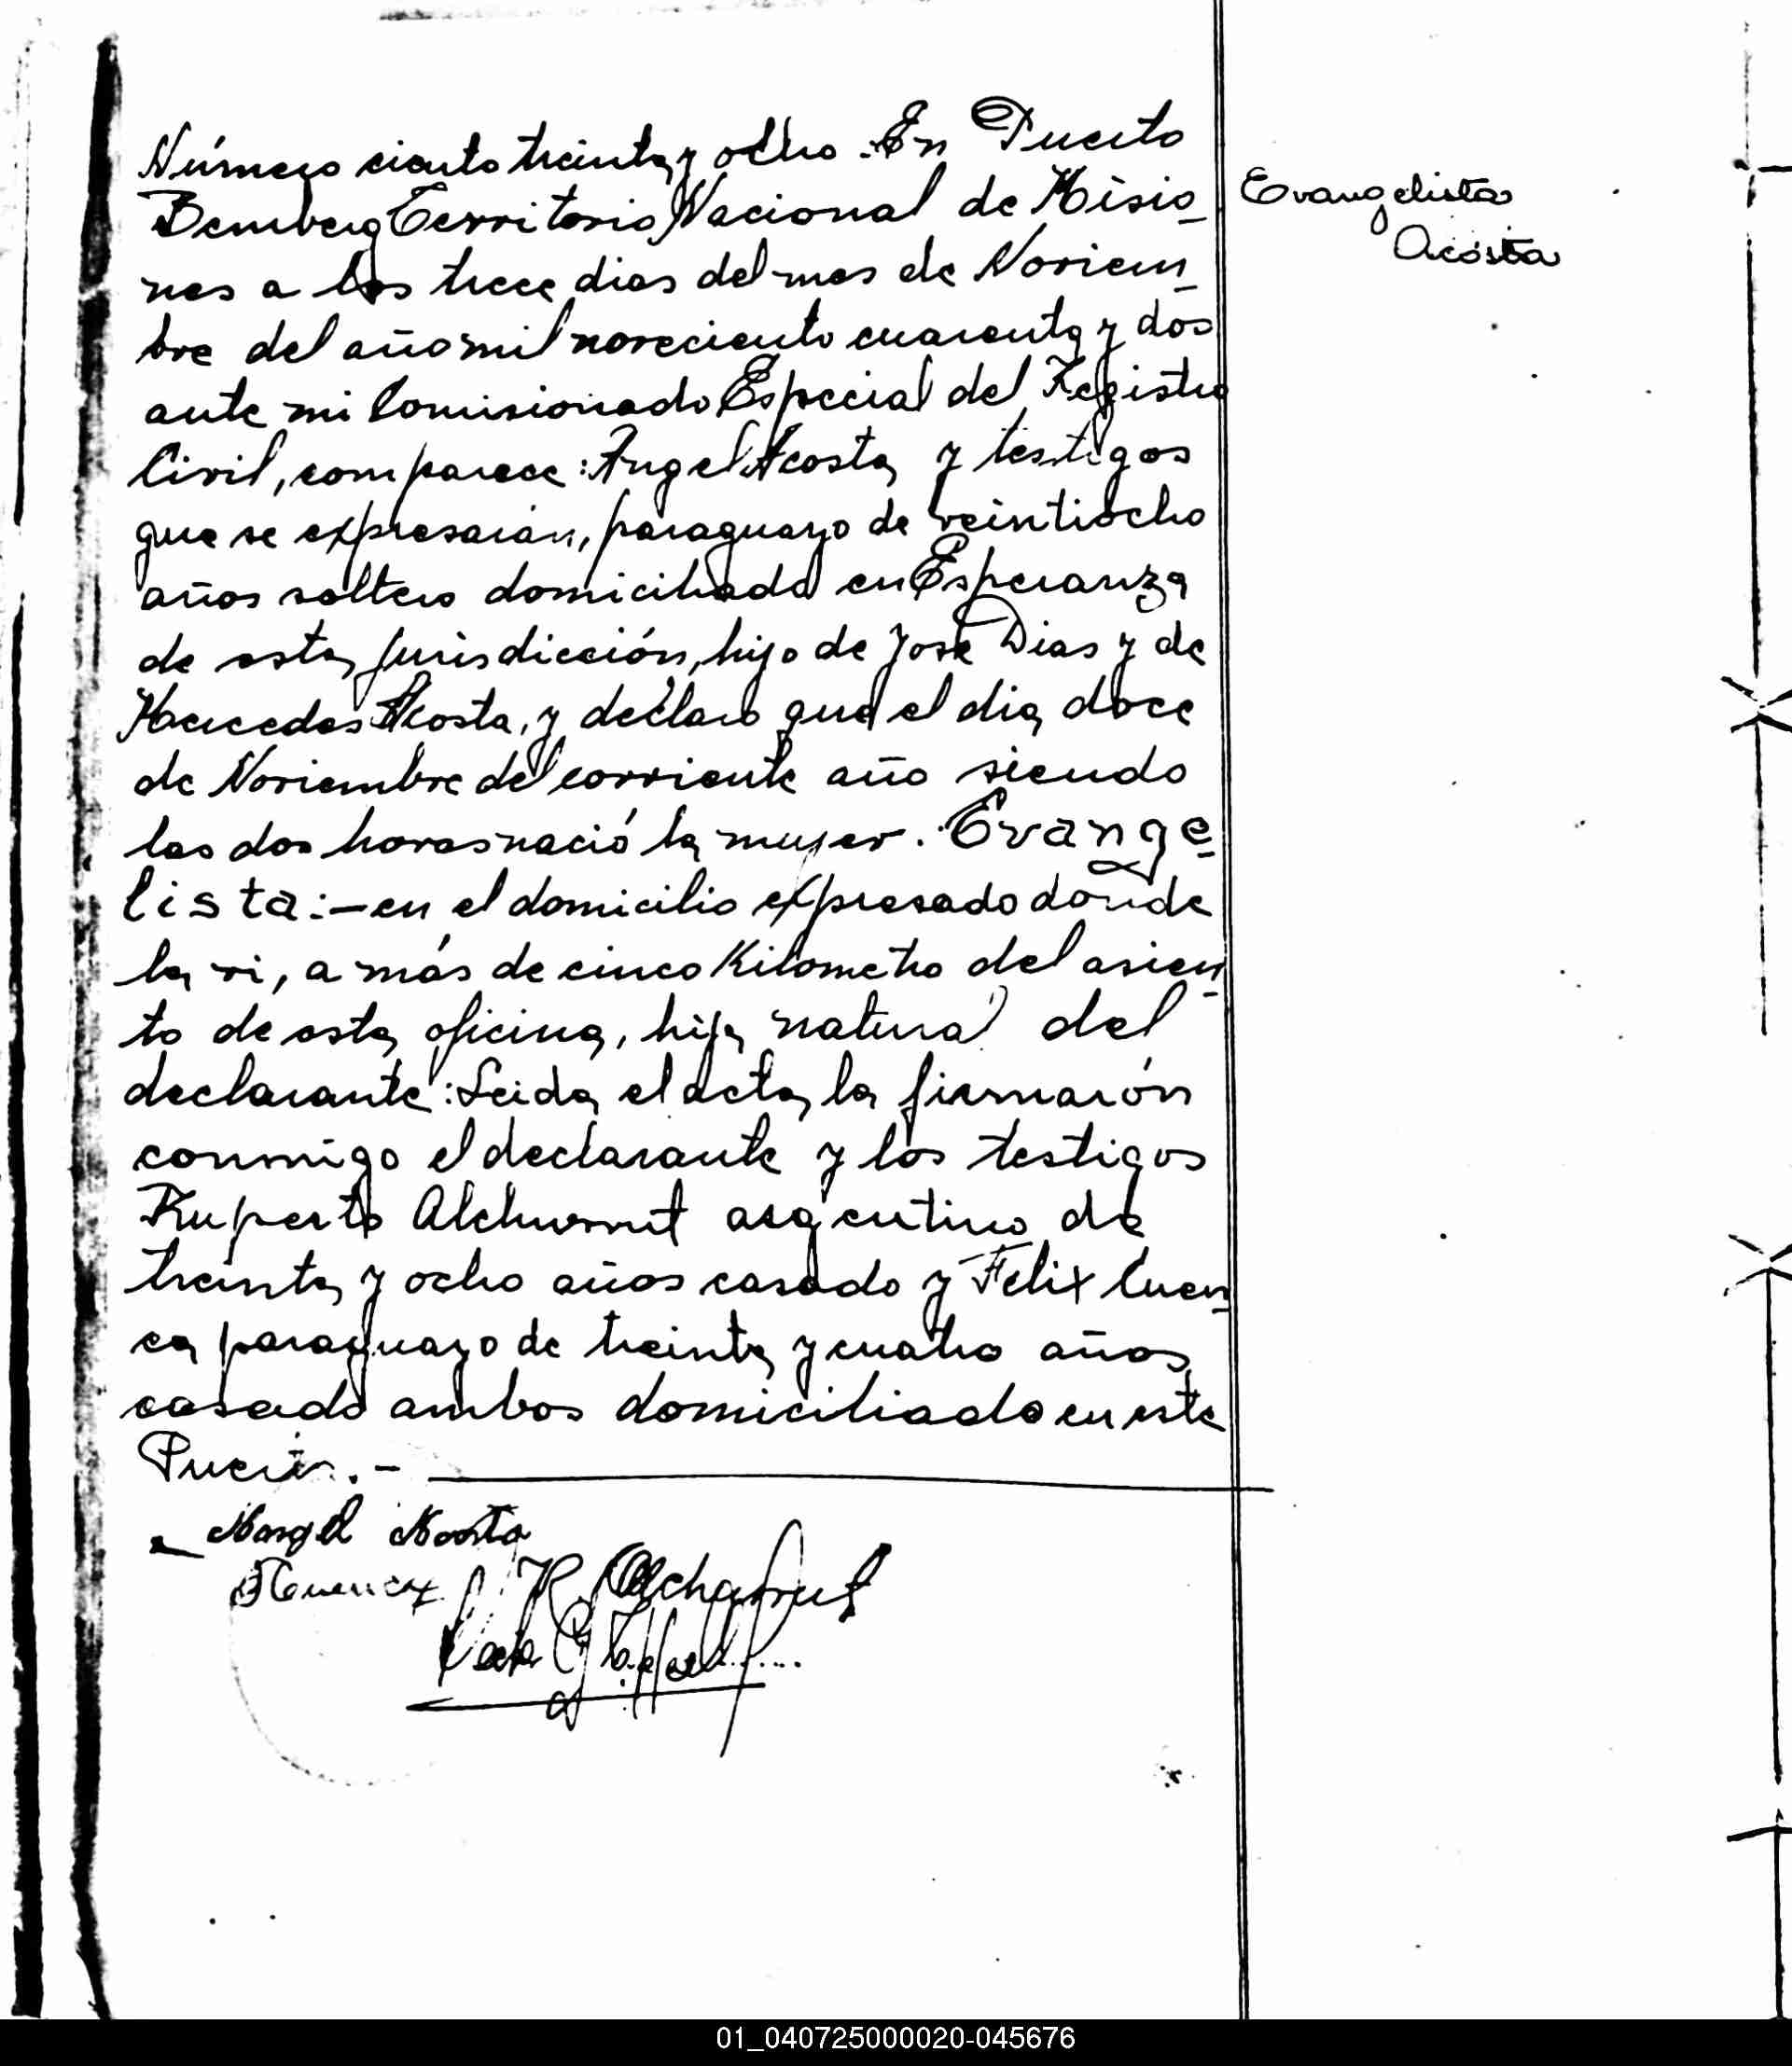 Número ciento treinta y ocho.- En Puerto
Bemberg Territorio Nacional de Misio_
nes a los trece dias del mes de Noviem_
bre del año mil noveciento cuarenta y dos
ante mi Comisionado Especial del Registro
Civil, comparece: Angel Acosta y testigos
que se expresarán, paraguayo de veintiocho
años soltero domiciliado en Esperanza
de esta jurisdicción, hijo de José Dias y de
Mercedes Acosta, y declaro que el dia doce
de Noviembre del corriente año siendo
las dos horas nació la mujer. Evange_
lista:- en el domicilio expresado donde
la vi, a más de cinco Kilometro del asien_
to de esta oficina, hija natural del
declarante: Leida el acta la firmarón
conmigo el declarante y los testigos
Ruperto Alchurrut argentino de
treinta y ocho años casado y Felix Cuen_
ca paraguayo de treinta y cuatro años
casado ambos domiciliado en este
Puerto.-
Angel Acosta
F Cuenca
R. Alchurrut
Evangelista
Acosta
01_040725000020-045676